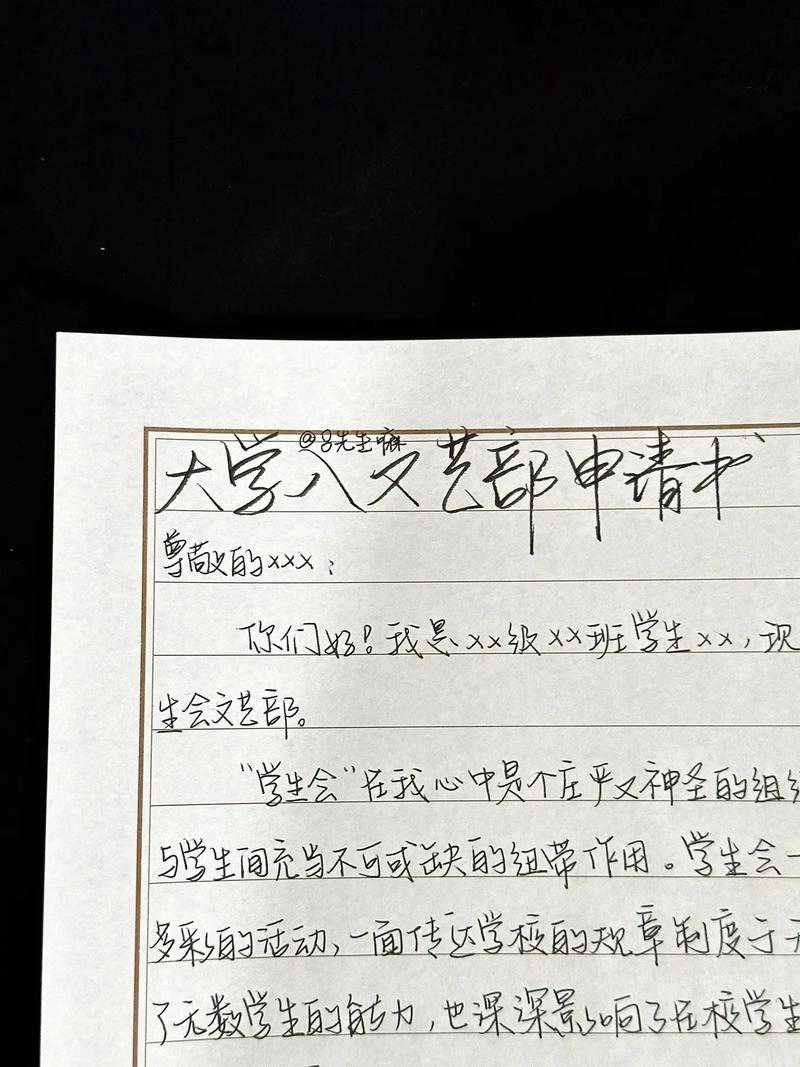 @吕先生嘛
大学入文艺部申请书
尊敬的xxx：
你们好！我是xx级xx班学生xx，现
生会文艺部。
“学生会”在我心中是个庄严又神圣的组织
与学生间充当不可或缺的纽带作用。学生会一
多彩的活动，一面传达学校的规章制度于
了无数学生的能力，也深深影响了在校学生